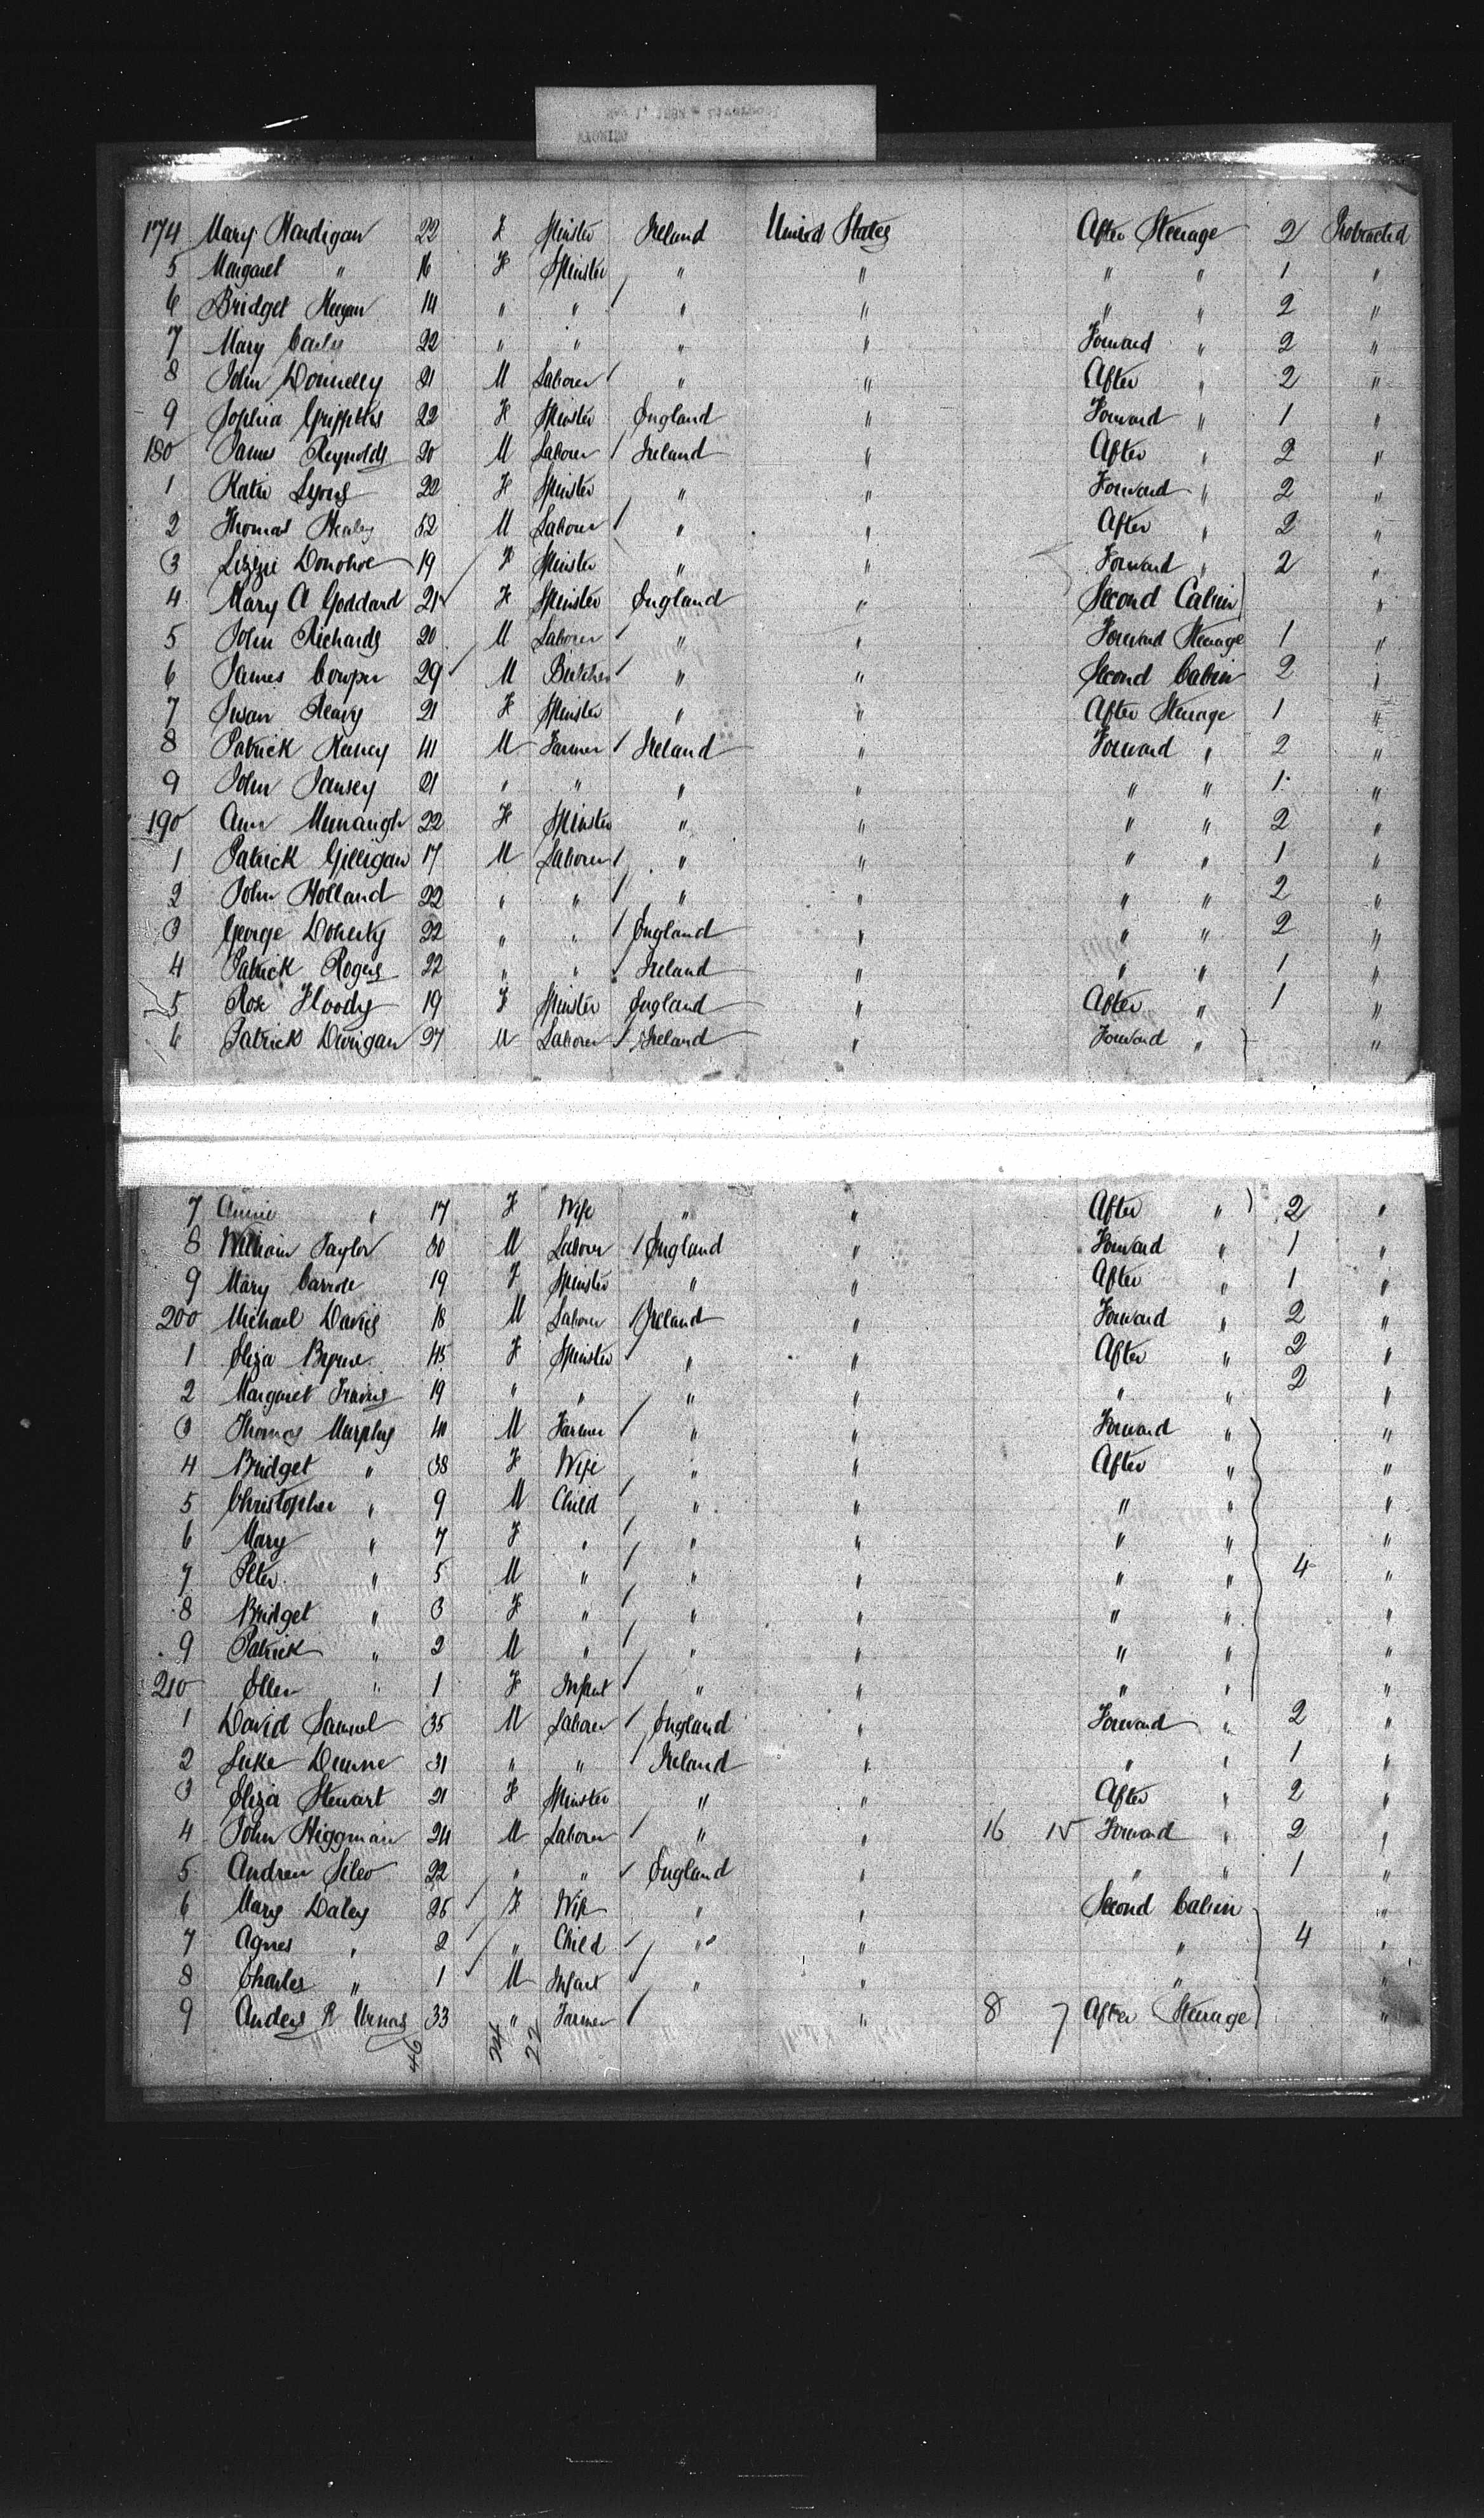 WYOMING
174 Mary Hardigan 22 F Spinster Ireland United States After Steerage 2 Protracted
5 Margaret " 16 F Spinster " " " " 1 "
6 Bridget Keegan 14 " " / " " " " 2 "
7 Mary 22 " " " " Forward " 2 "
8 John Donnelly 21 M Laborer / " " After " 2 "
9 Sophia Griffiths 22 F Spinster England " Forward " 1 "
180 James Reynolds 20 M Laborer / Ireland " After " 2 "
1 Katie Lyons 22 F Spinster " " Forward " 2 "
2 Thomas Healey 52 M Laborer / " " After " 2 "
3 Lizzie Donohoe 19 F Spinster " " Forward " 2 "
4 Mary A Goddard 21 F Spinster England " Second Cabin "
5 John Richards 20 M Laborer / " " Forward Steerage 1 "
6 James Cowper 29 M Butcher / " " Second Cabin 2 "
7 Susan 21 F Spinster " " After Steerage 1 "
8 Patrick 41 M Farmer / Ireland " Forward " 2 "
9 John 21 " " " " " " 1 "
190 Ann 22 F Spinster " " " " 2 "
1 Patrick Gilligan 17 M Laborer / " " " " 1 "
2 John Holland 22 " " / " " " " 2 "
3 George Doherty 22 " " / England " " " 2 "
4 Patrick Rogers 22 " " / Ireland " " " 1 "
5 Rose Floody 19 F Spinster England " After " 1 "
6 Patrick Durigan 27 M Laborer / Ireland " Forward " "
7 Annie " 17 F Wife " " After " 2 "
8 William Taylor 30 M Laborer / England " Forward " 1 "
9 Mary Carrole 19 F Spinster " " After " 1 "
200 Michael Davis 18 M Laborer / Ireland " Forward " 2 "
1 Eliza Byrne 45 F Spinster " " After " 2 "
2 Margaret Travis 19 " " " " " " 2 "
3 Thomas Murphy 40 M Farmer / " " Forward " "
4 Bridget " 38 F Wife " " After " "
5 Christopher " 9 M Child / " " " " "
6 Mary " 7 F " / " " " " "
7 Peter " 5 M " / " " " " 4 "
8 Bridget " 3 F " / " " " " "
9 Patrick " 2 M " / " " " " "
210 Ellen " 1 F Infant / " " " " "
1 David Samuel 35 M Laborer / England " Forward " 2 "
2 Luke Dunne 31 " " / Ireland " " " 1 "
3 Eliza Stewart 21 F Spinster " " After " 2 "
4 John Higgman 24 M Laborer / " " 16 15 Forward " 2 "
5 Andrew 22 " " / England " " " 1 "
6 Mary Daley 25 F Wife " " Second Cabin "
7 Agnes " 2 " Child / " " " 4 "
8 Charles " 1 M Infant / " " " "
9 Anders R 33 " Farmer / " 8 7 After Steerage "
46 24 22